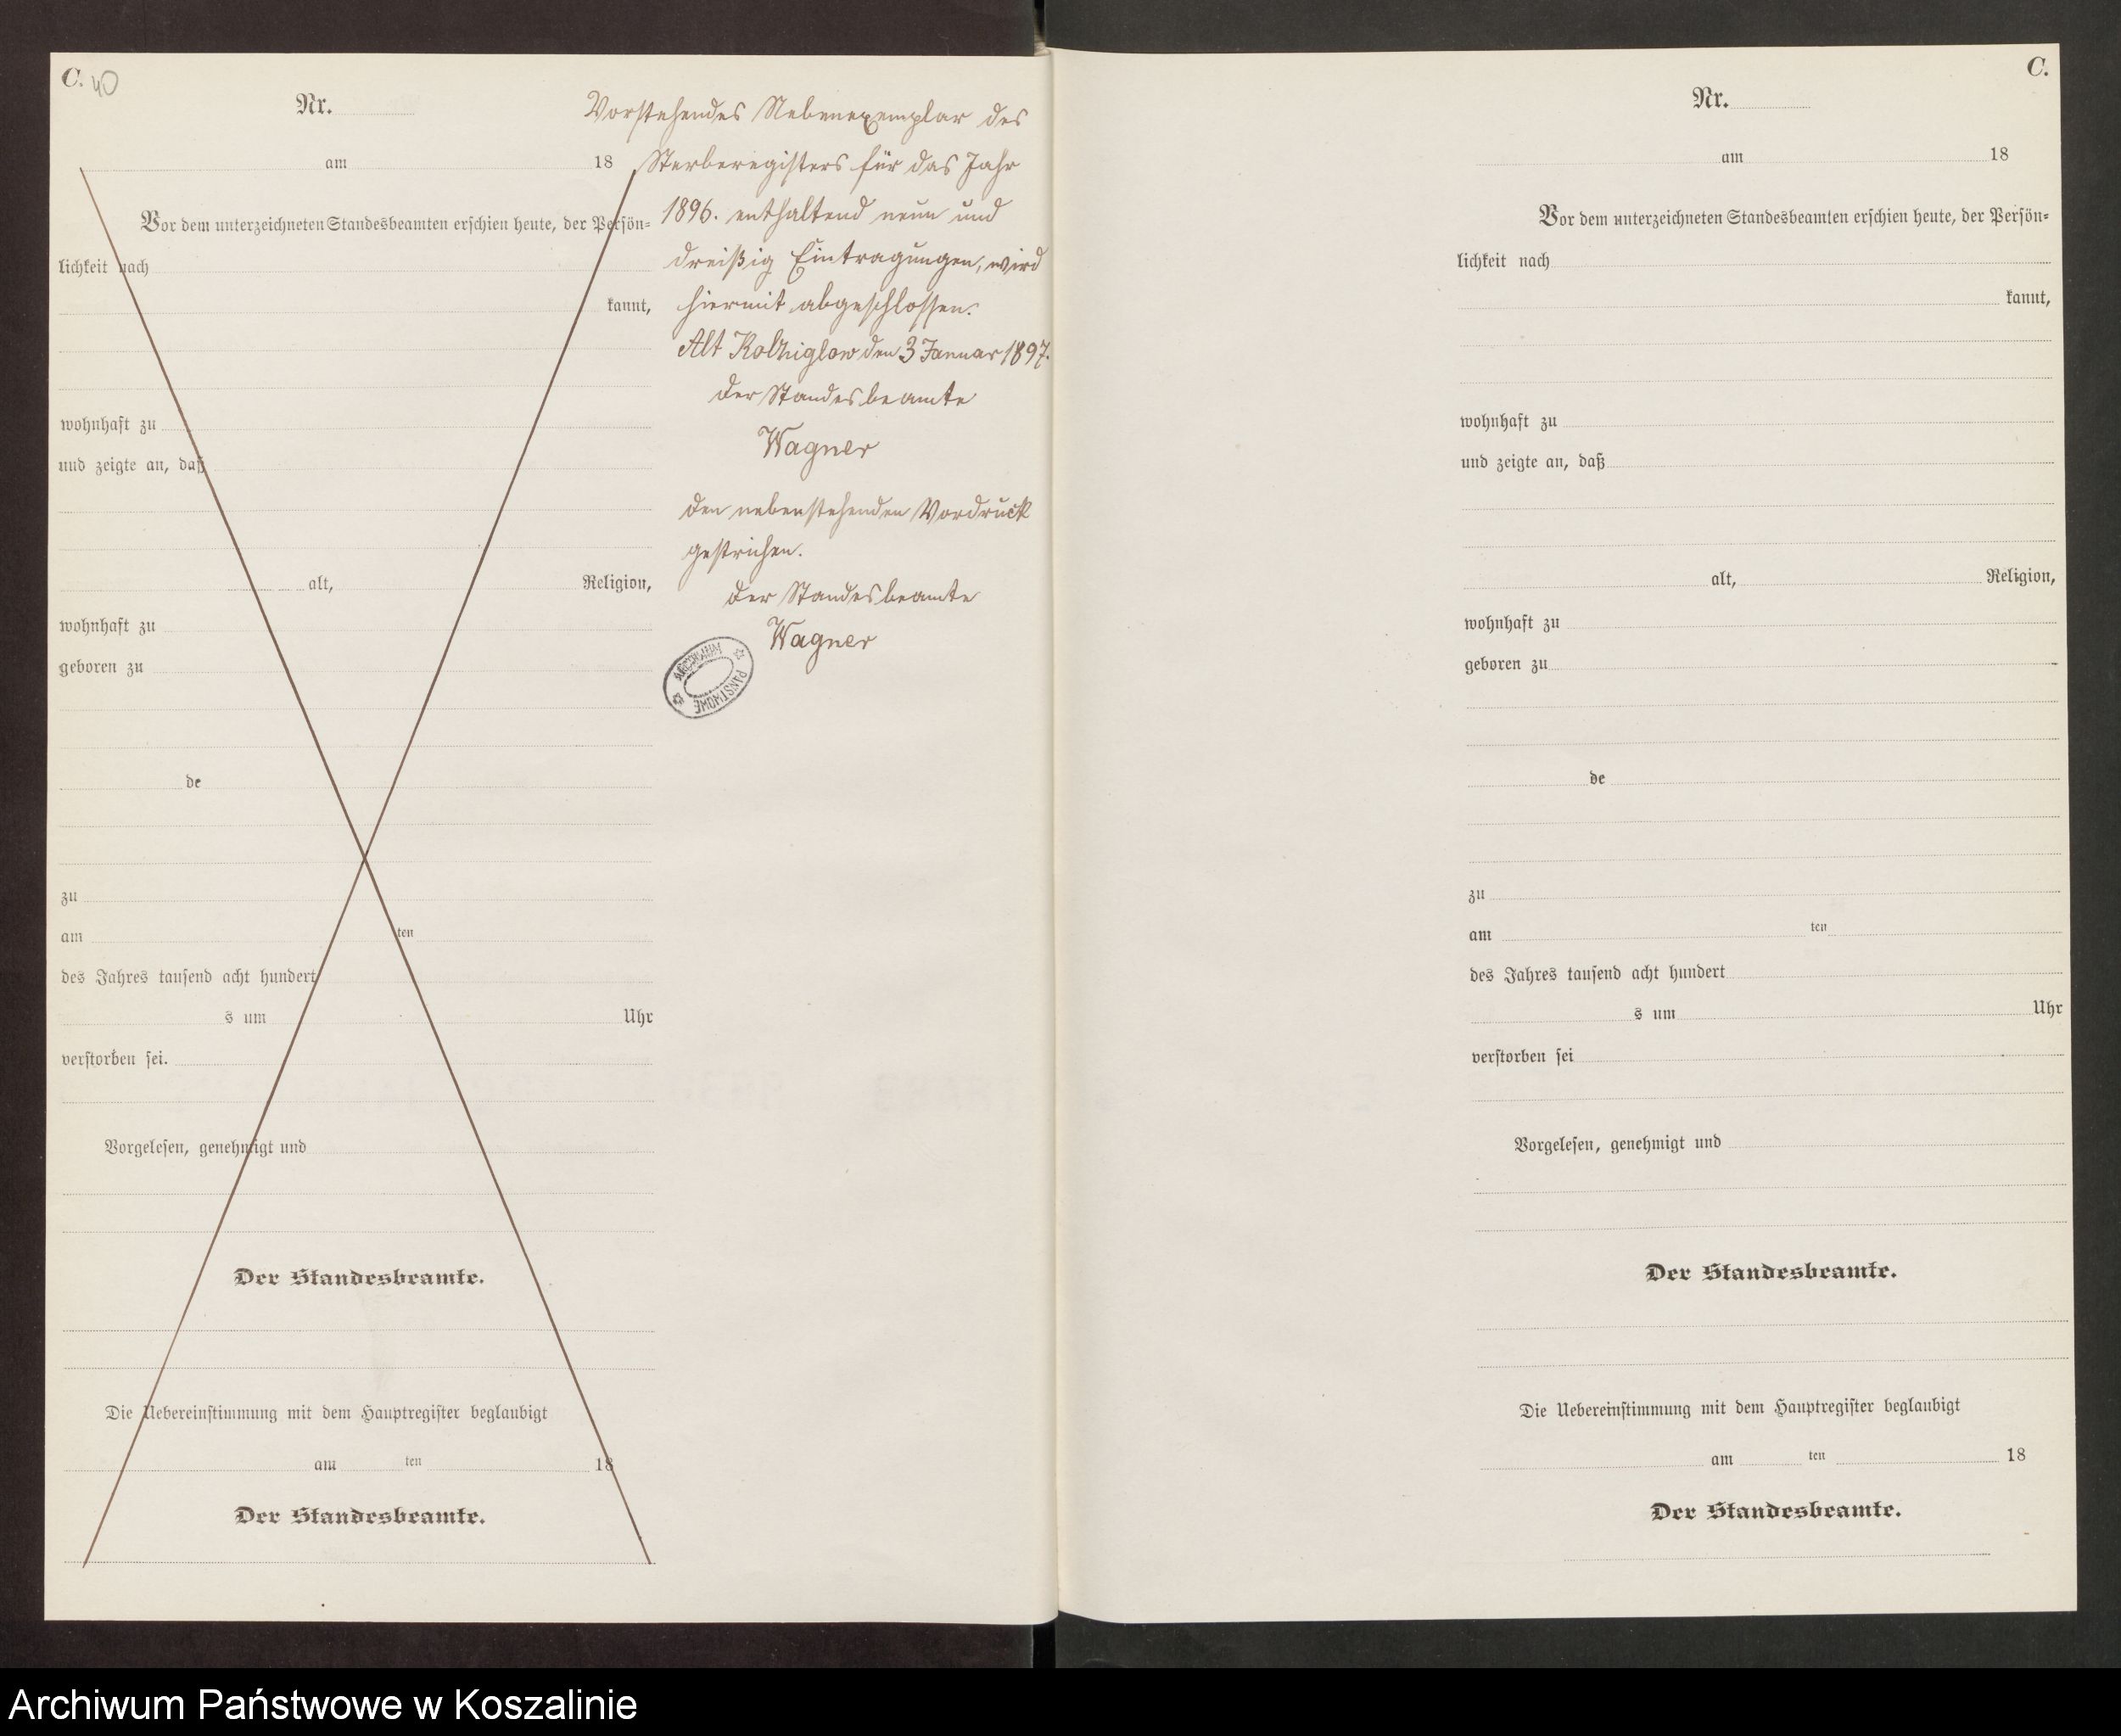 C. 40
Nr.
am 18
Vor dem unterzeichneten Standesbeamten erschien heute, der Persön=
lichkeit nach
kannt,
wohnhaft zu
und zeigte an, daß
alt, Religion,
wohnhaft zu
geboren zu
de
zu
am ten
des Jahres tausend acht hundert
s um Uhr
verstorben sei.
Vorgelesen, genehmigt und
Der Standesbeamte.
Die Uebereinstimmung mit dem Hauptregister beglaubigt
am ten 18
Der Standesbeamte.
Vorstehendes Nebenexemplar des
Sterberegisters für das Jahr
1896. enthaltend neun und
dreißig Eintragungen, wird
hiermit abgeschlossen.
Alt Kolziglow den 3 Januar 1897.
Der Standesbeamte
Wagner
Den nebenstehenden Vordruck
gestrichen.
Der Standesbeamte
Wagner
ARCHIWUM PAŃSTWOWE
C.
Nr.
am 18
Vor dem unterzeichneten Standesbeamten erschien heute, der Persön=
lichkeit nach
kannt,
wohnhaft zu
und zeigte an, daß
alt, Religion,
wohnhaft zu
geboren zu
de
zu
am ten
des Jahres tausend acht hundert
s um Uhr
verstorben sei
Vorgelesen, genehmigt und
Der Standesbeamte.
Die Uebereinstimmung mit dem Hauptregister beglaubigt
am ten 18
Der Standesbeamte.
Archiwum Państwowe w Koszalinie